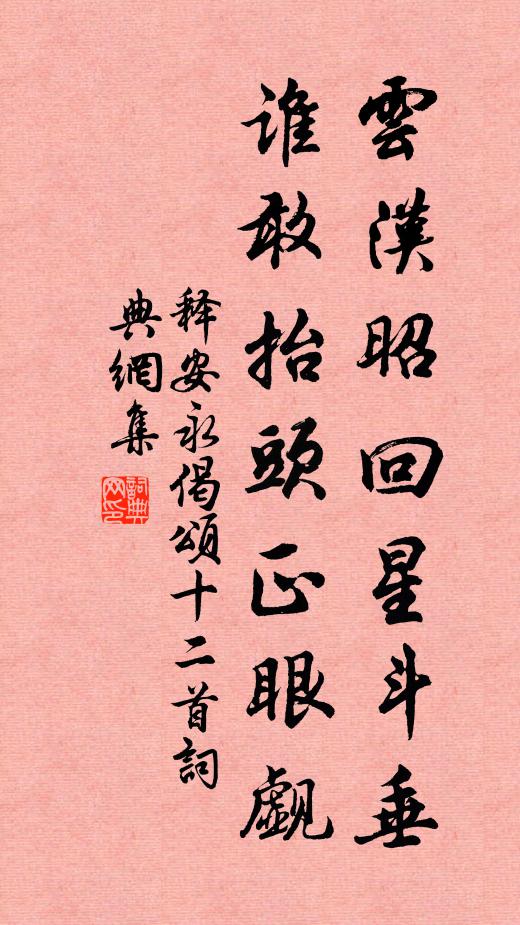 雲漢昭回星斗垂
誰敢抬頭正眼覷
释安永偈頌十二首詞
典網集
詞典网印